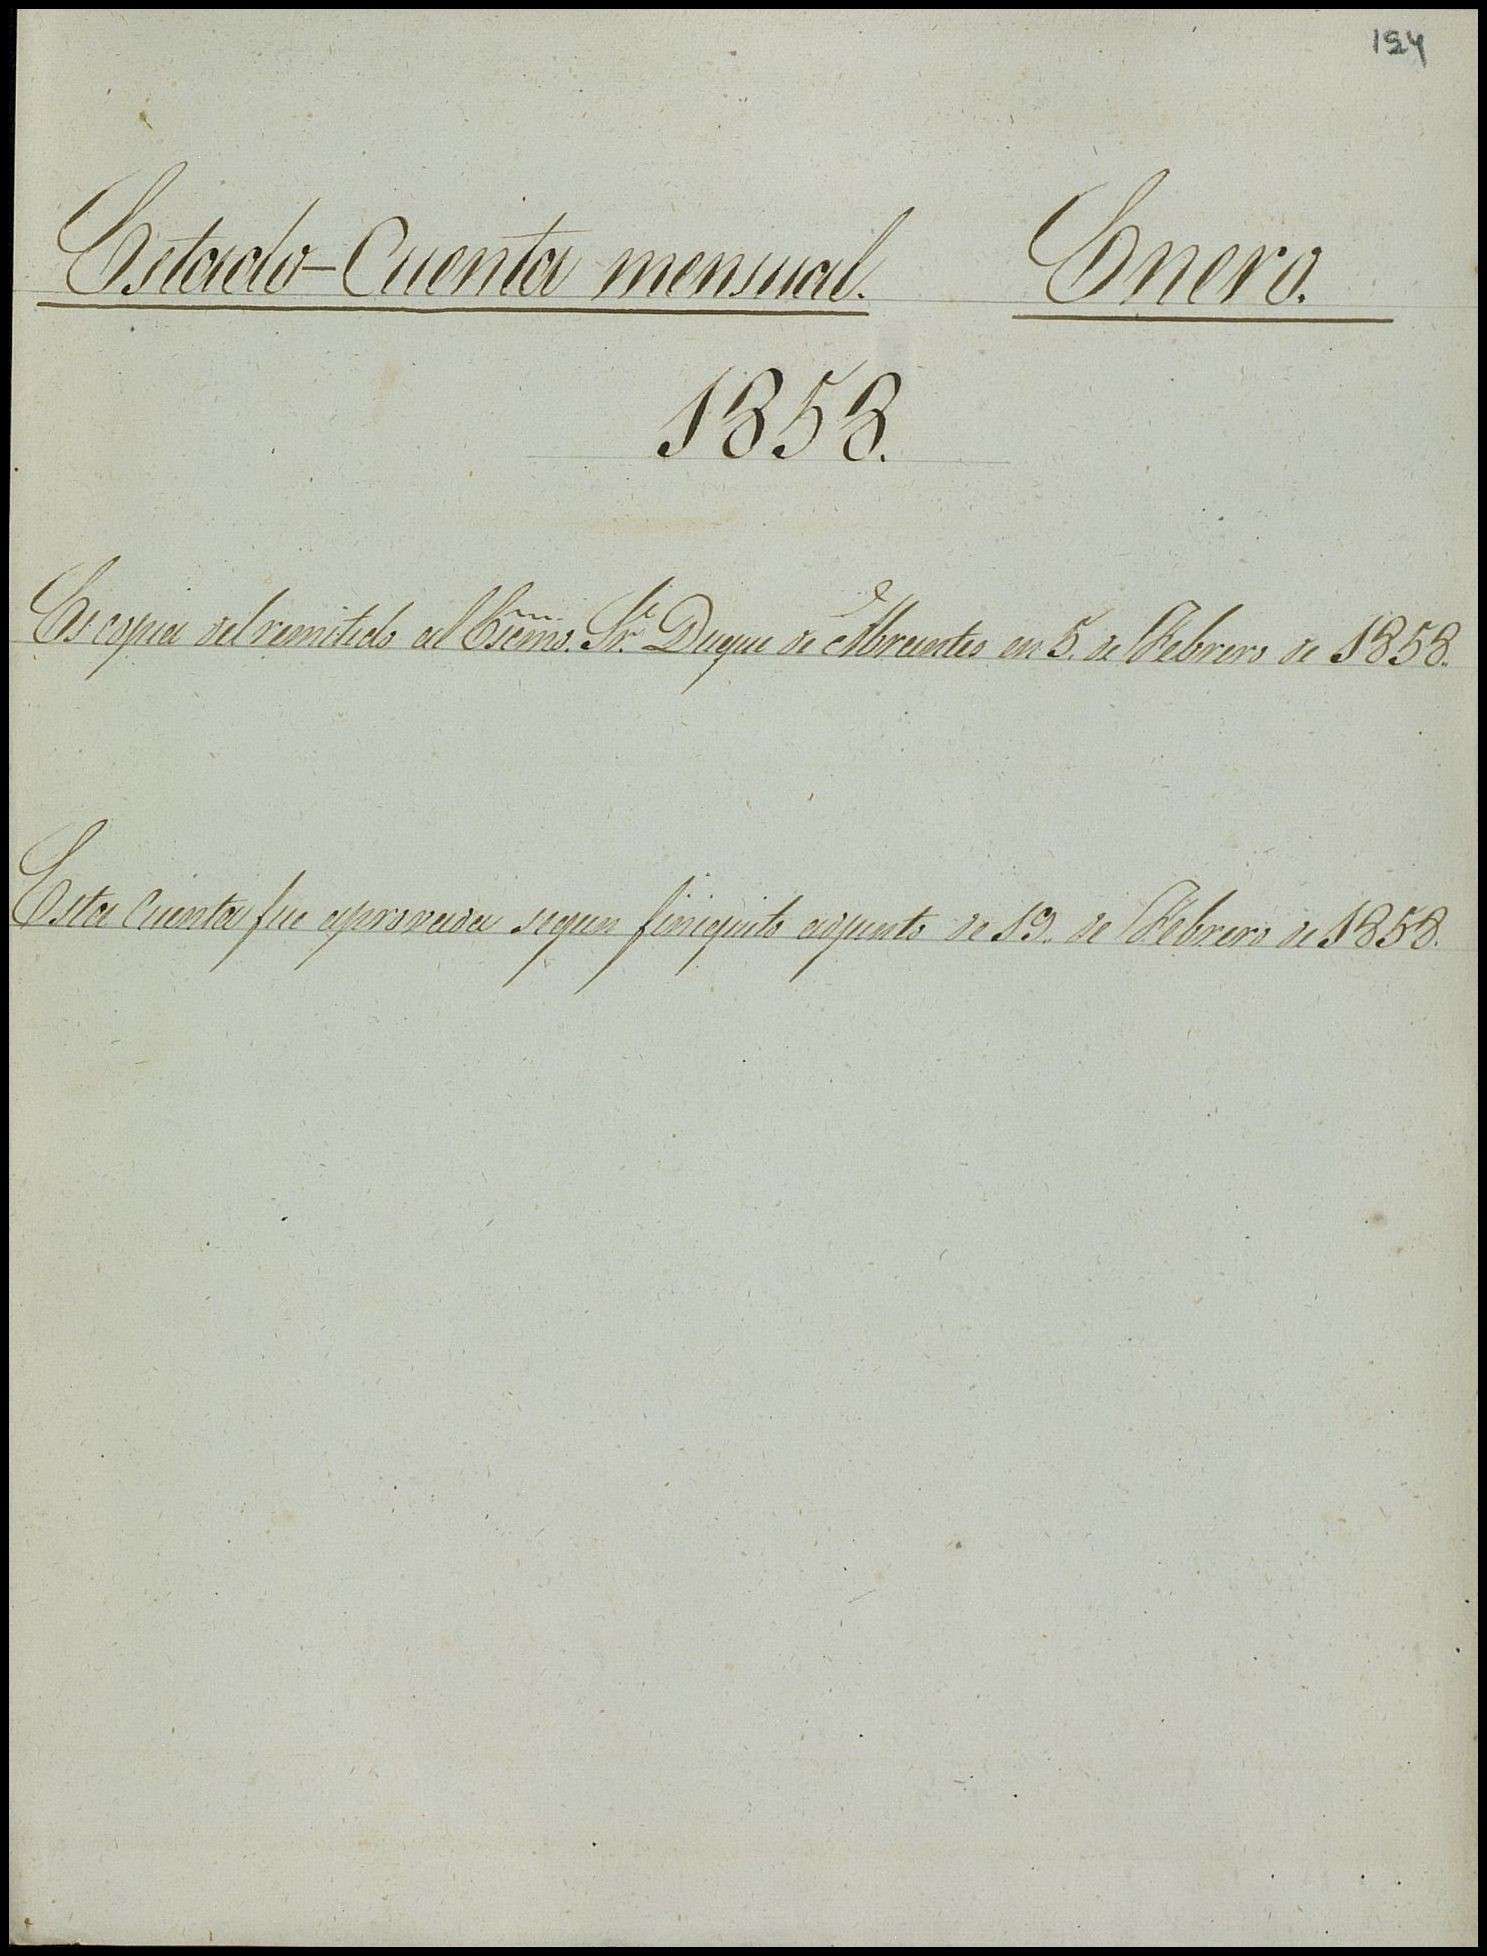 194
Estado-Cuenta mensual. Enero.
1858.
Es copia del remitido al Escmo. Sr. Duque de Abrantes en 5. de Febrero de 1858.
Esta Cuenta fue aprovada segun finiquito adjunto de 19. de Febrero de 1858.